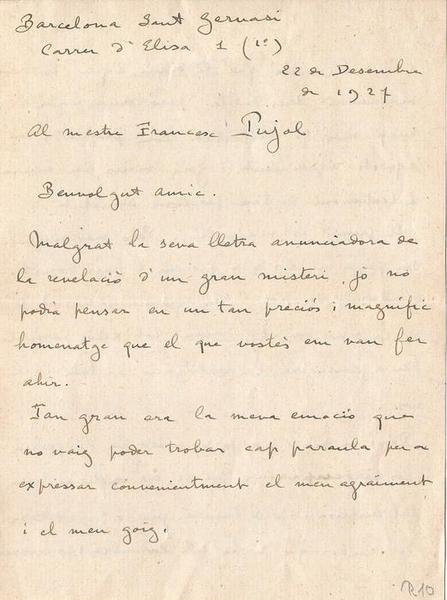 Barcelona Sant Gervasi
Carrer d'Elisa 1 (1º)
22 de Desembre
de 1927
Al mestre Francesc Pujol
Benvolgut amic.
Malgrat la seva lletra anunciadora de
la revelació d'un gran misteri, jo no
podia pensar en un tan preciós i magnífic
homenatge que el que vostès em van fer
ahir.
Tan gran era la meva emoció que
no vaig poder trobar cap paraula per a
expressar convenientment el meu agraiment
i el meu goig.
R10